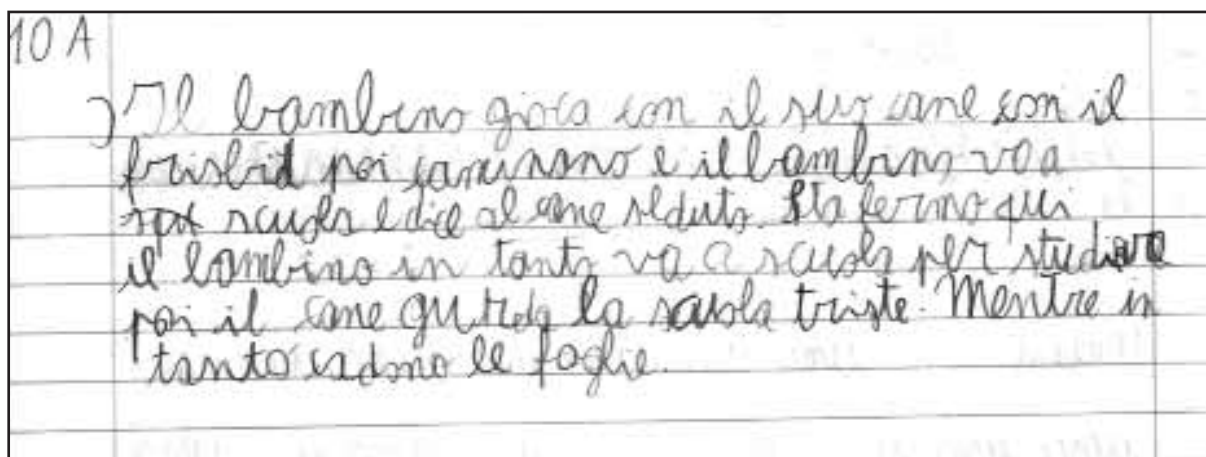 10 A
) Il bambino gioca con il suo cane con il
frisbid poi caminano e il bambino va a
scuola e dice al cane seduto. Sta fermo qui
il bambino in tanto va a scuola per studiare
poi il cane gurda la scuola triste. Mentre in
tanto cadono le foglie.